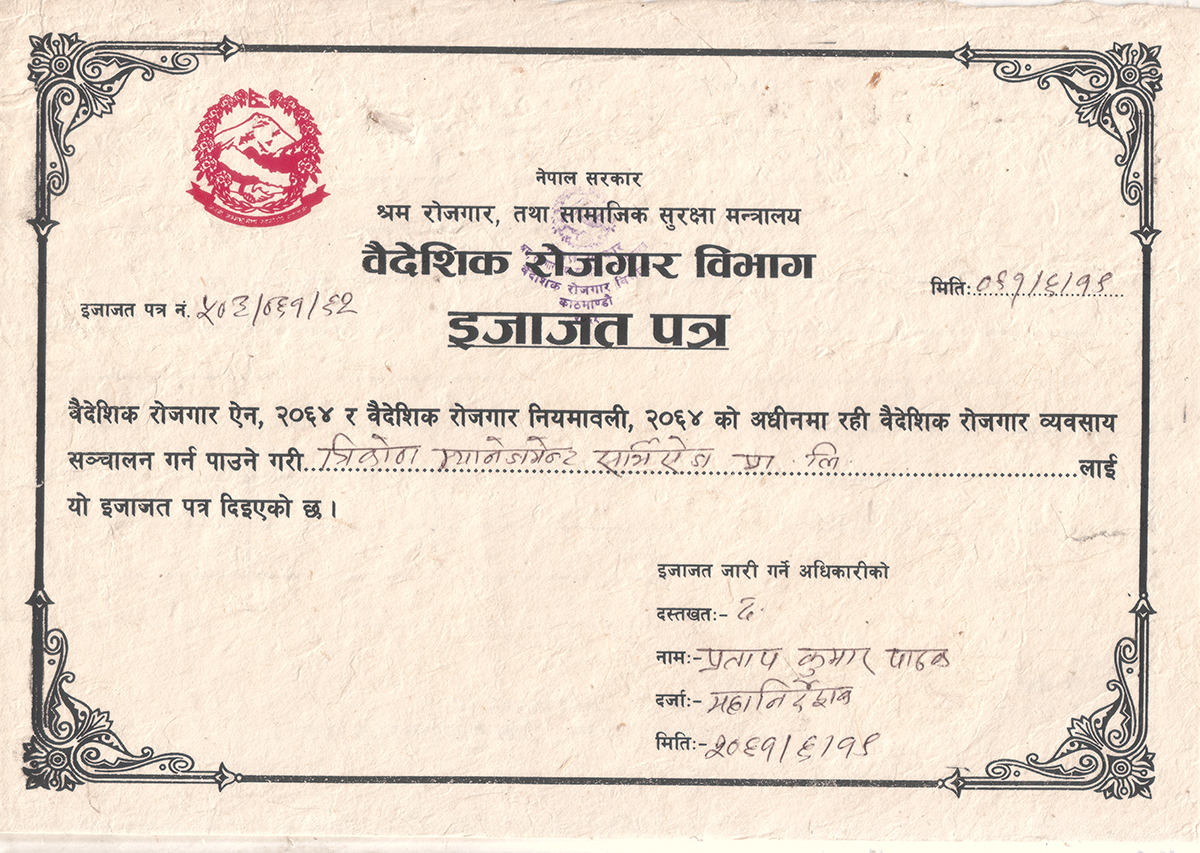 नेपाल सरकार
श्रम रोजगार, तथा सामाजिक सुरक्षा मन्त्रालय
वैदेशिक रोजगार विभाग
वैदेशिक रोजगार
काठमाण्डौ
मिति: ०६१/६/१९
इजाजत पत्र नं. ५०३/०६१/६२
इजाजत पत्र
वैदेशिक रोजगार ऐन, २०६४ र वैदेशिक रोजगार नियमावली, २०६४ को अधीनमा रही वैदेशिक रोजगार व्यवसाय
सञ्चालन गर्न पाउने गरी त्रिकोण म्यानेजमेन्ट सर्भिसेज प्रा लि लाई
यो इजाजत पत्र दिइएको छ ।
इजाजत जारी गर्ने अधिकारीको
दस्तखतः- द.
नामः- प्रताप कुमार पाठक
दर्जाः- महानिर्देशक
मितिः- २०६१/६/१९